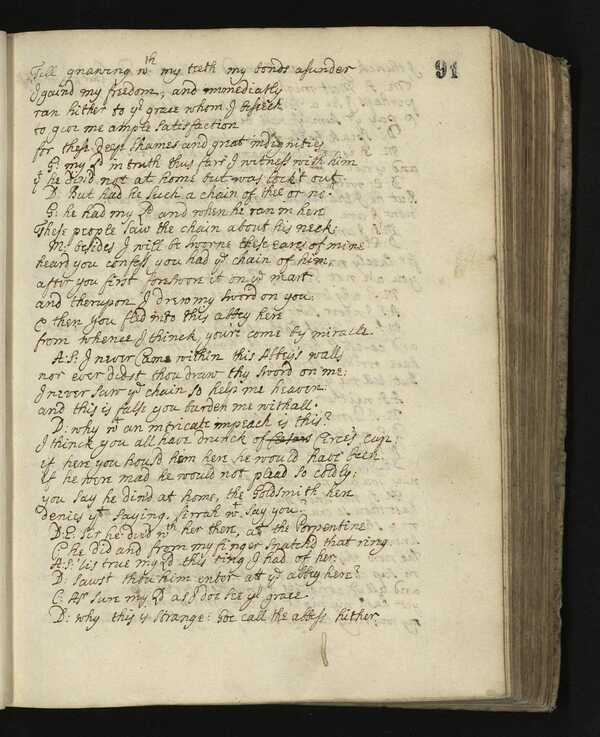 91
Till gnawing wth my teeth my bonds asunder
I gaind my freedom, and immediatly
ran hither to yr grace whom I beseech
to give me ample satisfaction
for these deep shames and great indignities
G: my Ld in truth thus farr I witness with him
yt he dined not at home but was lock't out.
D: But had he such a chain of thee or no?
G: he had my Ld and when he ran in here
These people saw the chain about his neck:
M: besides I will be sworne these eares of mine
heard you confess you had ye chain of him,
after you first forswore it on ye mart
and therupon I drew my sword on you:
& then you fled into this abbey here
from whence I thinck, you're come by miracle.
A:S: I never came within this Abbeys walls
nor ever didst thou draw thy sword on me:
I never saw ye chain so help me heaven:
and this is false you burden me withall.
D: why wt an intricate impeach is this?
I thinck you all have drunck of Circe's cup;
if here you hous'd him here he would have been
if he were mad he would not plead so coldly;
you say he dind at home, the Goldsmith here
denies yt saying. sirrah wt say you.
D:E: Sir he died wth her there, at the Porpentine
C: he did and from my finger snatchd that ring
A:S: 'tis true my Ld this ring I had of her.
D: sawst thou him enter at ye abbey here?
C: As sure my Ld as I doe see yr grace.
D: why this is strange: Goe call the abbess hither.